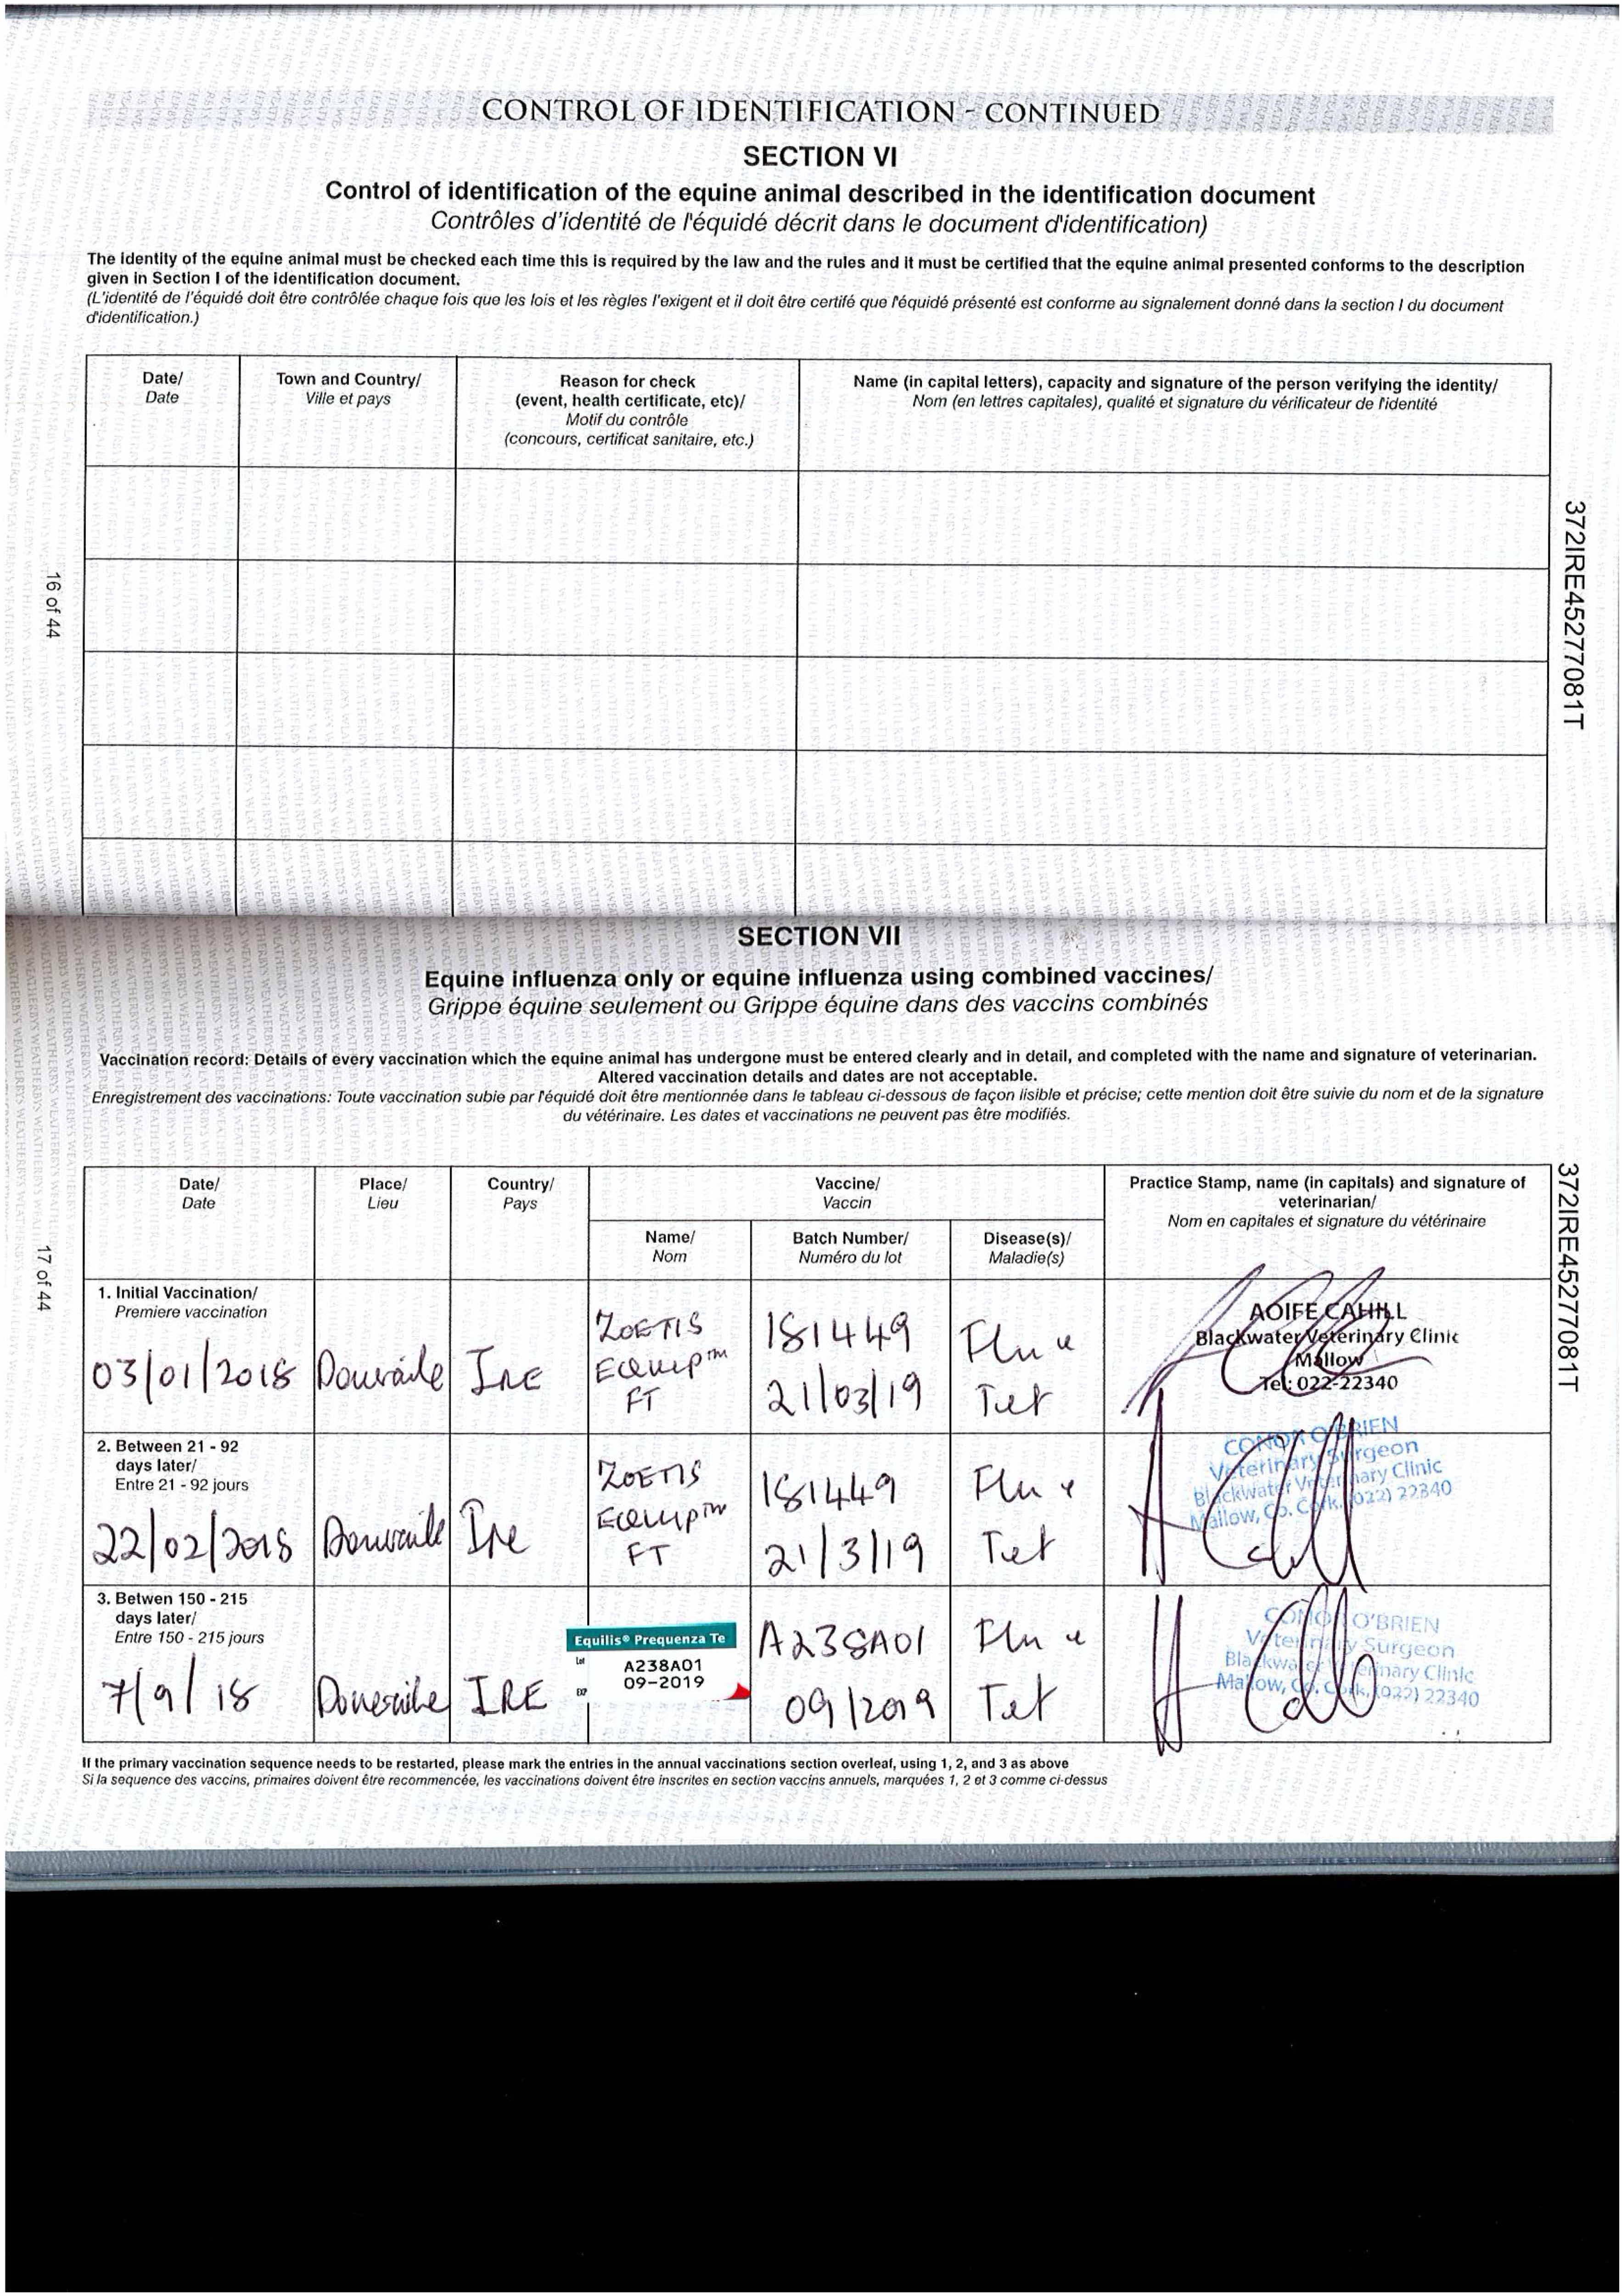 CONTROL OF IDENTIFICATION - CONTINUED
SECTION VI
Control of identification of the equine animal described in the identification document
Contrôles d'identité de l'équidé décrit dans le document d'identification)
The identity of the equine animal must be checked each time this is required by the law and the rules and it must be certified that the equine animal presented conforms to the description
given in Section I of the identification document.
(L'identité de l'équidé doit être contrôlée chaque fois que les lois et les règles l'exigent et il doit être certifé que l'équidé présenté est conforme au signalement donné dans la section I du document
d'identification.)
Date/
Date
Town and Country/
Ville et pays
Reason for check
(event, health certificate, etc)/
Motif du contrôle
(concours, certificat sanitaire, etc.)
Name (in capital letters), capacity and signature of the person verifying the identity/
Nom (en lettres capitales), qualité et signature du vérificateur de l'identité
16 of 44
372IRE45277081T
SECTION VII
Equine influenza only or equine influenza using combined vaccines/
Grippe équine seulement ou Grippe équine dans des vaccins combinés
Vaccination record: Details of every vaccination which the equine animal has undergone must be entered clearly and in detail, and completed with the name and signature of veterinarian.
Altered vaccination details and dates are not acceptable.
Enregistrement des vaccinations: Toute vaccination subie par l'équidé doit être mentionnée dans le tableau ci-dessous de façon lisible et précise; cette mention doit être suivie du nom et de la signature
du vétérinaire. Les dates et vaccinations ne peuvent pas être modifiés.
17 of 44
372IRE45277081T
Date/
Date
Place/
Lieu
Country/
Pays
Vaccine/
Vaccin
Name/
Nom
Batch Number/
Numéro du lot
Disease(s)/
Maladie(s)
Practice Stamp, name (in capitals) and signature of
veterinarian/
Nom en capitales et signature du vétérinaire
1. Initial Vaccination/
Premiere vaccination
03/01/2018
Doneraile
IRE
ZOETIS
EQUIP™
FT
181449
21/03/19
Flu &
Tet
AOIFE CAHILL
Blackwater Veterinary Clinic
Mallow
Tel: 022-22340
2. Between 21 - 92
days later/
Entre 21 - 92 jours
22/02/2018
Doneraile
Ire
ZOETIS
EQUIP™
FT
181449
21/3/19
Flu &
Tet
CONOR O'BRIEN
Veterinary Surgeon
Blackwater Veterinary Clinic
Mallow, Co. Cork. (022) 22340
A Cahill
3. Betwen 150 - 215
days later/
Entre 150 - 215 jours
7/9/18
Doneraile
IRE
Equilis® Prequenza Te
Lot
A238A01
09-2019
EXP
A238A01
09/2019
Flu &
Tet
CONOR O'BRIEN
Veterinary Surgeon
Blackwater Veterinary Clinic
Mallow, Co. Cork. (022) 22340
If the primary vaccination sequence needs to be restarted, please mark the entries in the annual vaccinations section overleaf, using 1, 2, and 3 as above
Si la sequence des vaccins, primaires doivent être recommencée, les vaccinations doivent être inscrites en section vaccins annuels, marquées 1, 2 et 3 comme ci-dessus